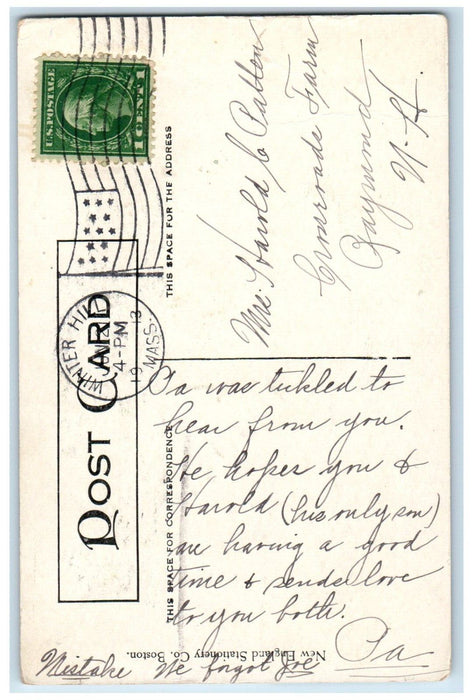 U.S. POSTAGE
1 CENT 1
WINTER HILL
4-PM
1913
MASS.
POST CARD
THIS SPACE FOR THE ADDRESS
Mrs. Harold C Patten
Crossroads Farm
Raymond
N. H.
THIS SPACE FOR CORRESPONDENCE
Pa was tickled to
hear from you.
He hopes you &
Harold (his only son)
are having a good
time & sends love
to you both.
Pa
Mistake He forgot Joe
New England Stationery Co. Boston.